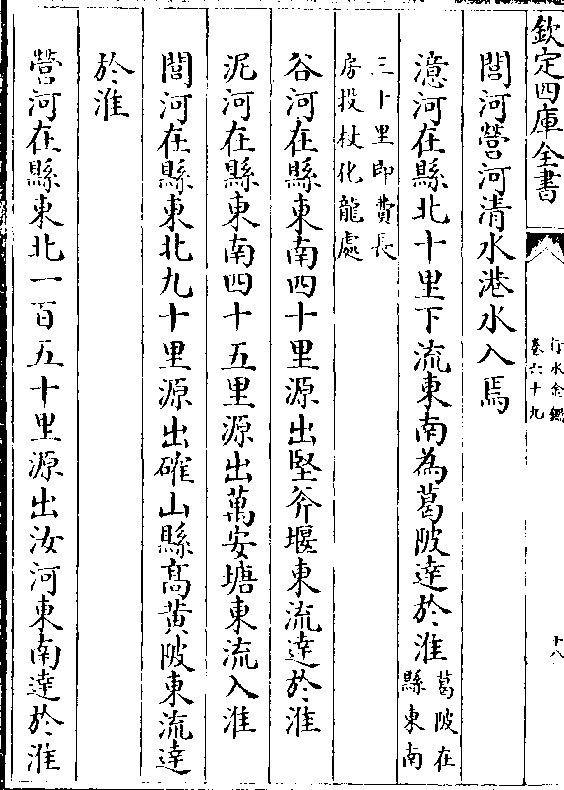 欽定四庫全書
行水金鑑
卷六十九
十八
閭河營河清水港水入焉
澺河在縣北十里下流東南為葛陂達於淮葛陂在
縣東南
三十里即費長
房投杖化龍處
谷河在縣東南四十里源出堅斧堰東流達於淮
泥河在縣東南四十五里源出萬安塘東流入淮
閭河在縣東北九十里源出確山縣高黄陂東流達
於淮
營河在縣東北一百五十里源出汝河東南達於淮